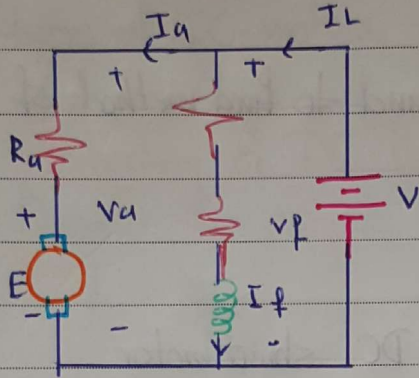 Ia
IL
+
+
Ra
+
Va
V
Vf
E
If
-
-
-